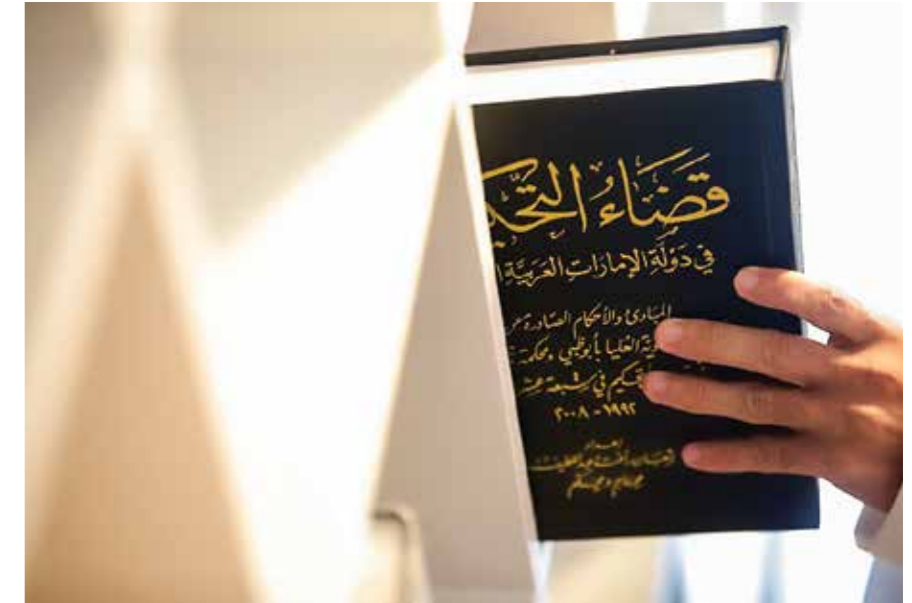 قَضَاءُ التَّحكيـ
في دَوْلَةِ الإمارات العَرَبيَّة ا
المبادئ والأحكام الصادرة عن
العليا بأبوظبي ومحكمة
في سبعة عشر
١٩٩٢ - ٢٠٠٨
إعداد
محام ومحكم